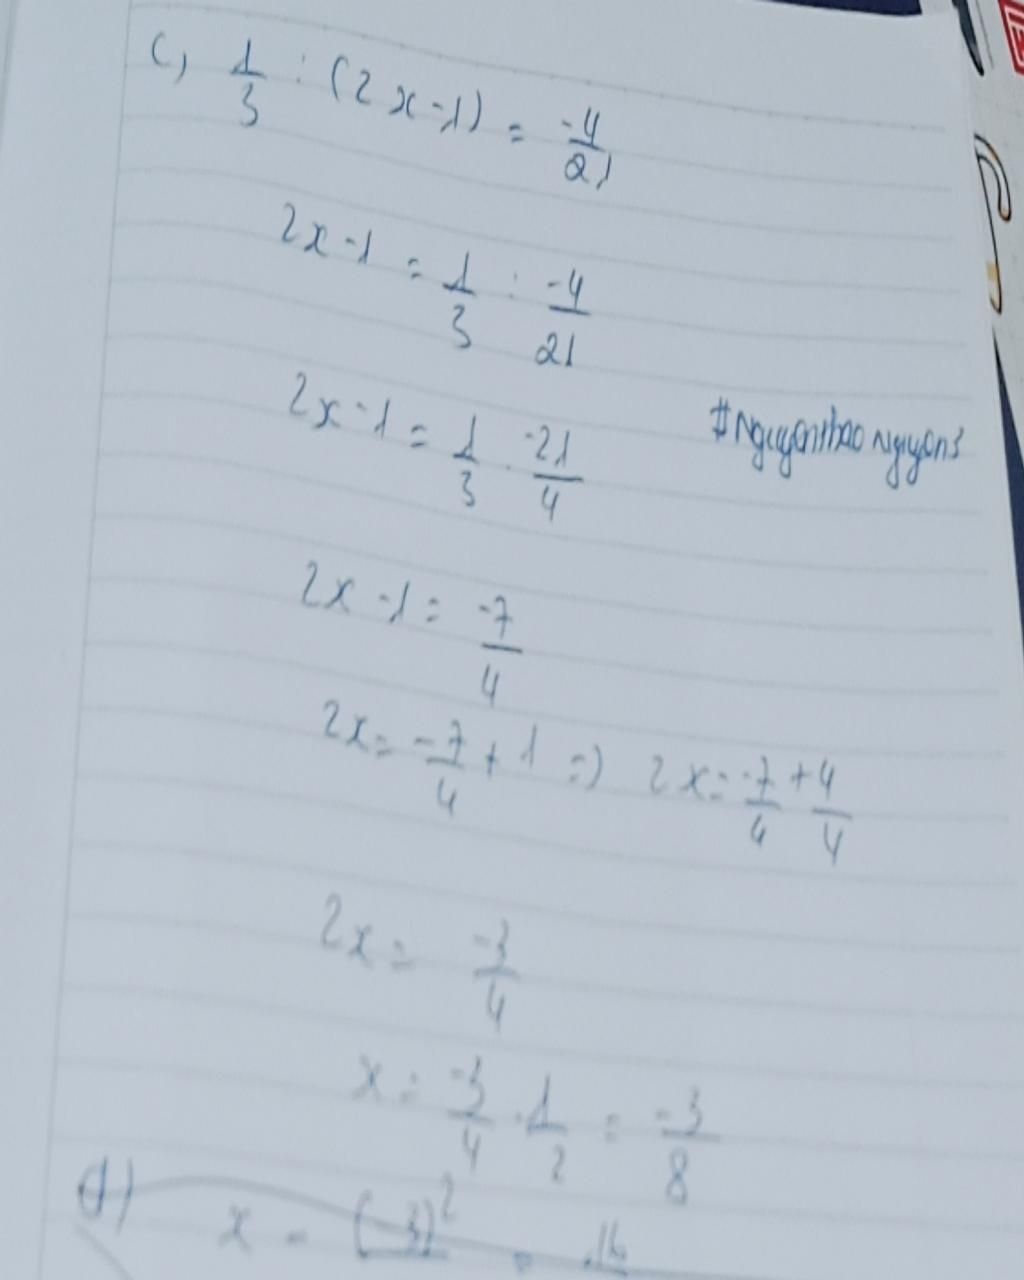 c, 1/3 : (2x-1) = -4/21
2x-1 = 1/3 : -4/21
2x-1 = 1/3 . -21/4
#Nguyenthao Nguyen3
2x-1 = -7/4
2x = -7/4 + 1 => 2x = -7/4 + 4/4
2x = -3/4
x = -3/4 . 1/2 = -3/8
d)